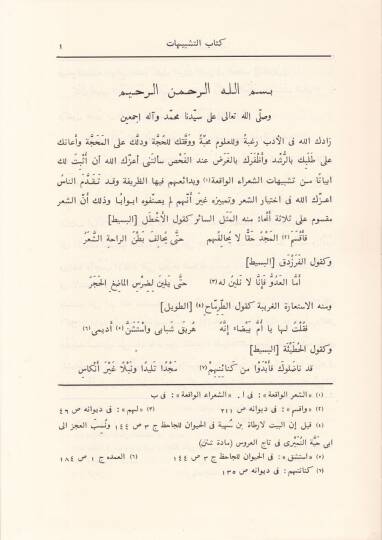 كتاب التشبيهات ١
بسم الله الرحمن الرحيم
وصلّى الله تعالى على سيّدنا محمّد وآله اجمعين
زادك الله فى الأدب رغبةً وللعلوم محبّةً ووفّقك للحُجّة ودلّك على المَحَجَّة وأعانك
على طَلَبِك بالرُّشد وأظفرك بالغَرَض عند الفَحْص سألتنى أعزّك الله أن أُثْبِت لك
ابياتًا من تشبيهات الشعراء الواقعة(١) وبدائعهم فيها الظريفة وقد تقدّم الناسُ
اعزّك الله فى اختيار الشعر وتمييزه غير أنّهم لم يصنّفوه ابوابا وذلك أنّ الشعر
مقسوم على ثلاثة أنحاء: منه المَثَل السائر كقول الأَخْطَل [البسيط]
فأَقْسَمَ(٢) المَجْدُ حَقًّا لا يُحالِفُهم حتّى يُحالِفَ بَطْنَ الراحةِ الشَّعَرُ
وكقول الفَرَزْدَق [البسيط]
أَمّا العَدُوُّ فَإِنّا لا نَلينُ له(٣) حتّى يَلينَ لِضِرْسِ الماضِغِ الحَجَرُ
ومنه الاستعارة الغريبة كقول الطِّرِمّاح(٤) [الطويل]
فقُلْتُ لها يا أُمَّ بَيْضاءَ إنَّهُ هُريقَ شَبابى واسْتَشَنَّ(٥) أديمى(٦)
وكقول الحُطَيْئَة [البسيط]
قد ناضَلوك فأَبْدَوْا من كَنانَتِهِمْ(٧) مَجْدًا تَليدًا ونَبْلًا غَيْرَ أَنْكاسِ
(١) «الشعر الواقعة»: فى ا. «الشعراء الواقعة»: فى ب
(٢) «واقسم»: فى ديوانه ص ٢١١ (٣) «لهم»: فى ديوانه ص ٤٦
(٤) قيل إن البيت لارطاة بن سُهية فى الحيوان للجاحظ ج ٣ ص ١٤٤ ونُسِبَ العجز الى
ابى حَيَّة النُّمَيْرى فى تاج العروس (مادة شنن)
(٥) «استشق»: فى الحيوان للجاحظ ج ٣ ص ١٤٤ (٦) العمدة ج ١ ص ١٨٤
(٦) كنانتهم: فى ديوانه ص ١٣٥